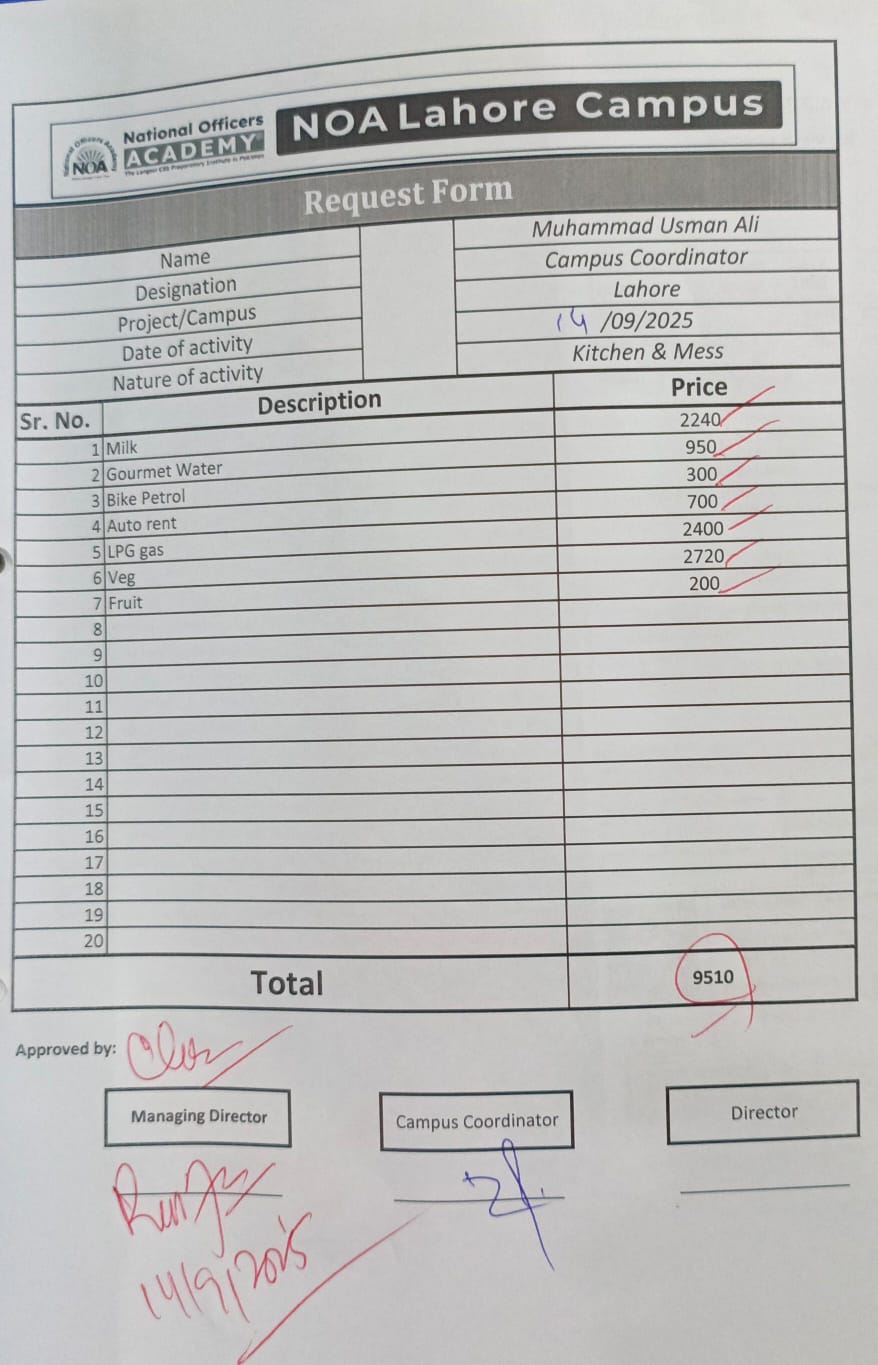 National Officers
ACADEMY
The Largest CSS Preparatory Institute in Pakistan
NOA
NOA Lahore Campus
Request Form
Name Muhammad Usman Ali
Designation Campus Coordinator
Project/Campus Lahore
Date of activity 14 /09/2025
Nature of activity Kitchen & Mess
Sr. No. Description Price
1 Milk 2240
2 Gourmet Water 950
3 Bike Petrol 300
4 Auto rent 700
5 LPG gas 2400
6 Veg 2720
7 Fruit 200
8
9
10
11
12
13
14
15
16
17
18
19
20
Total 9510
Approved by:
Managing Director Campus Coordinator Director
14/9/2025